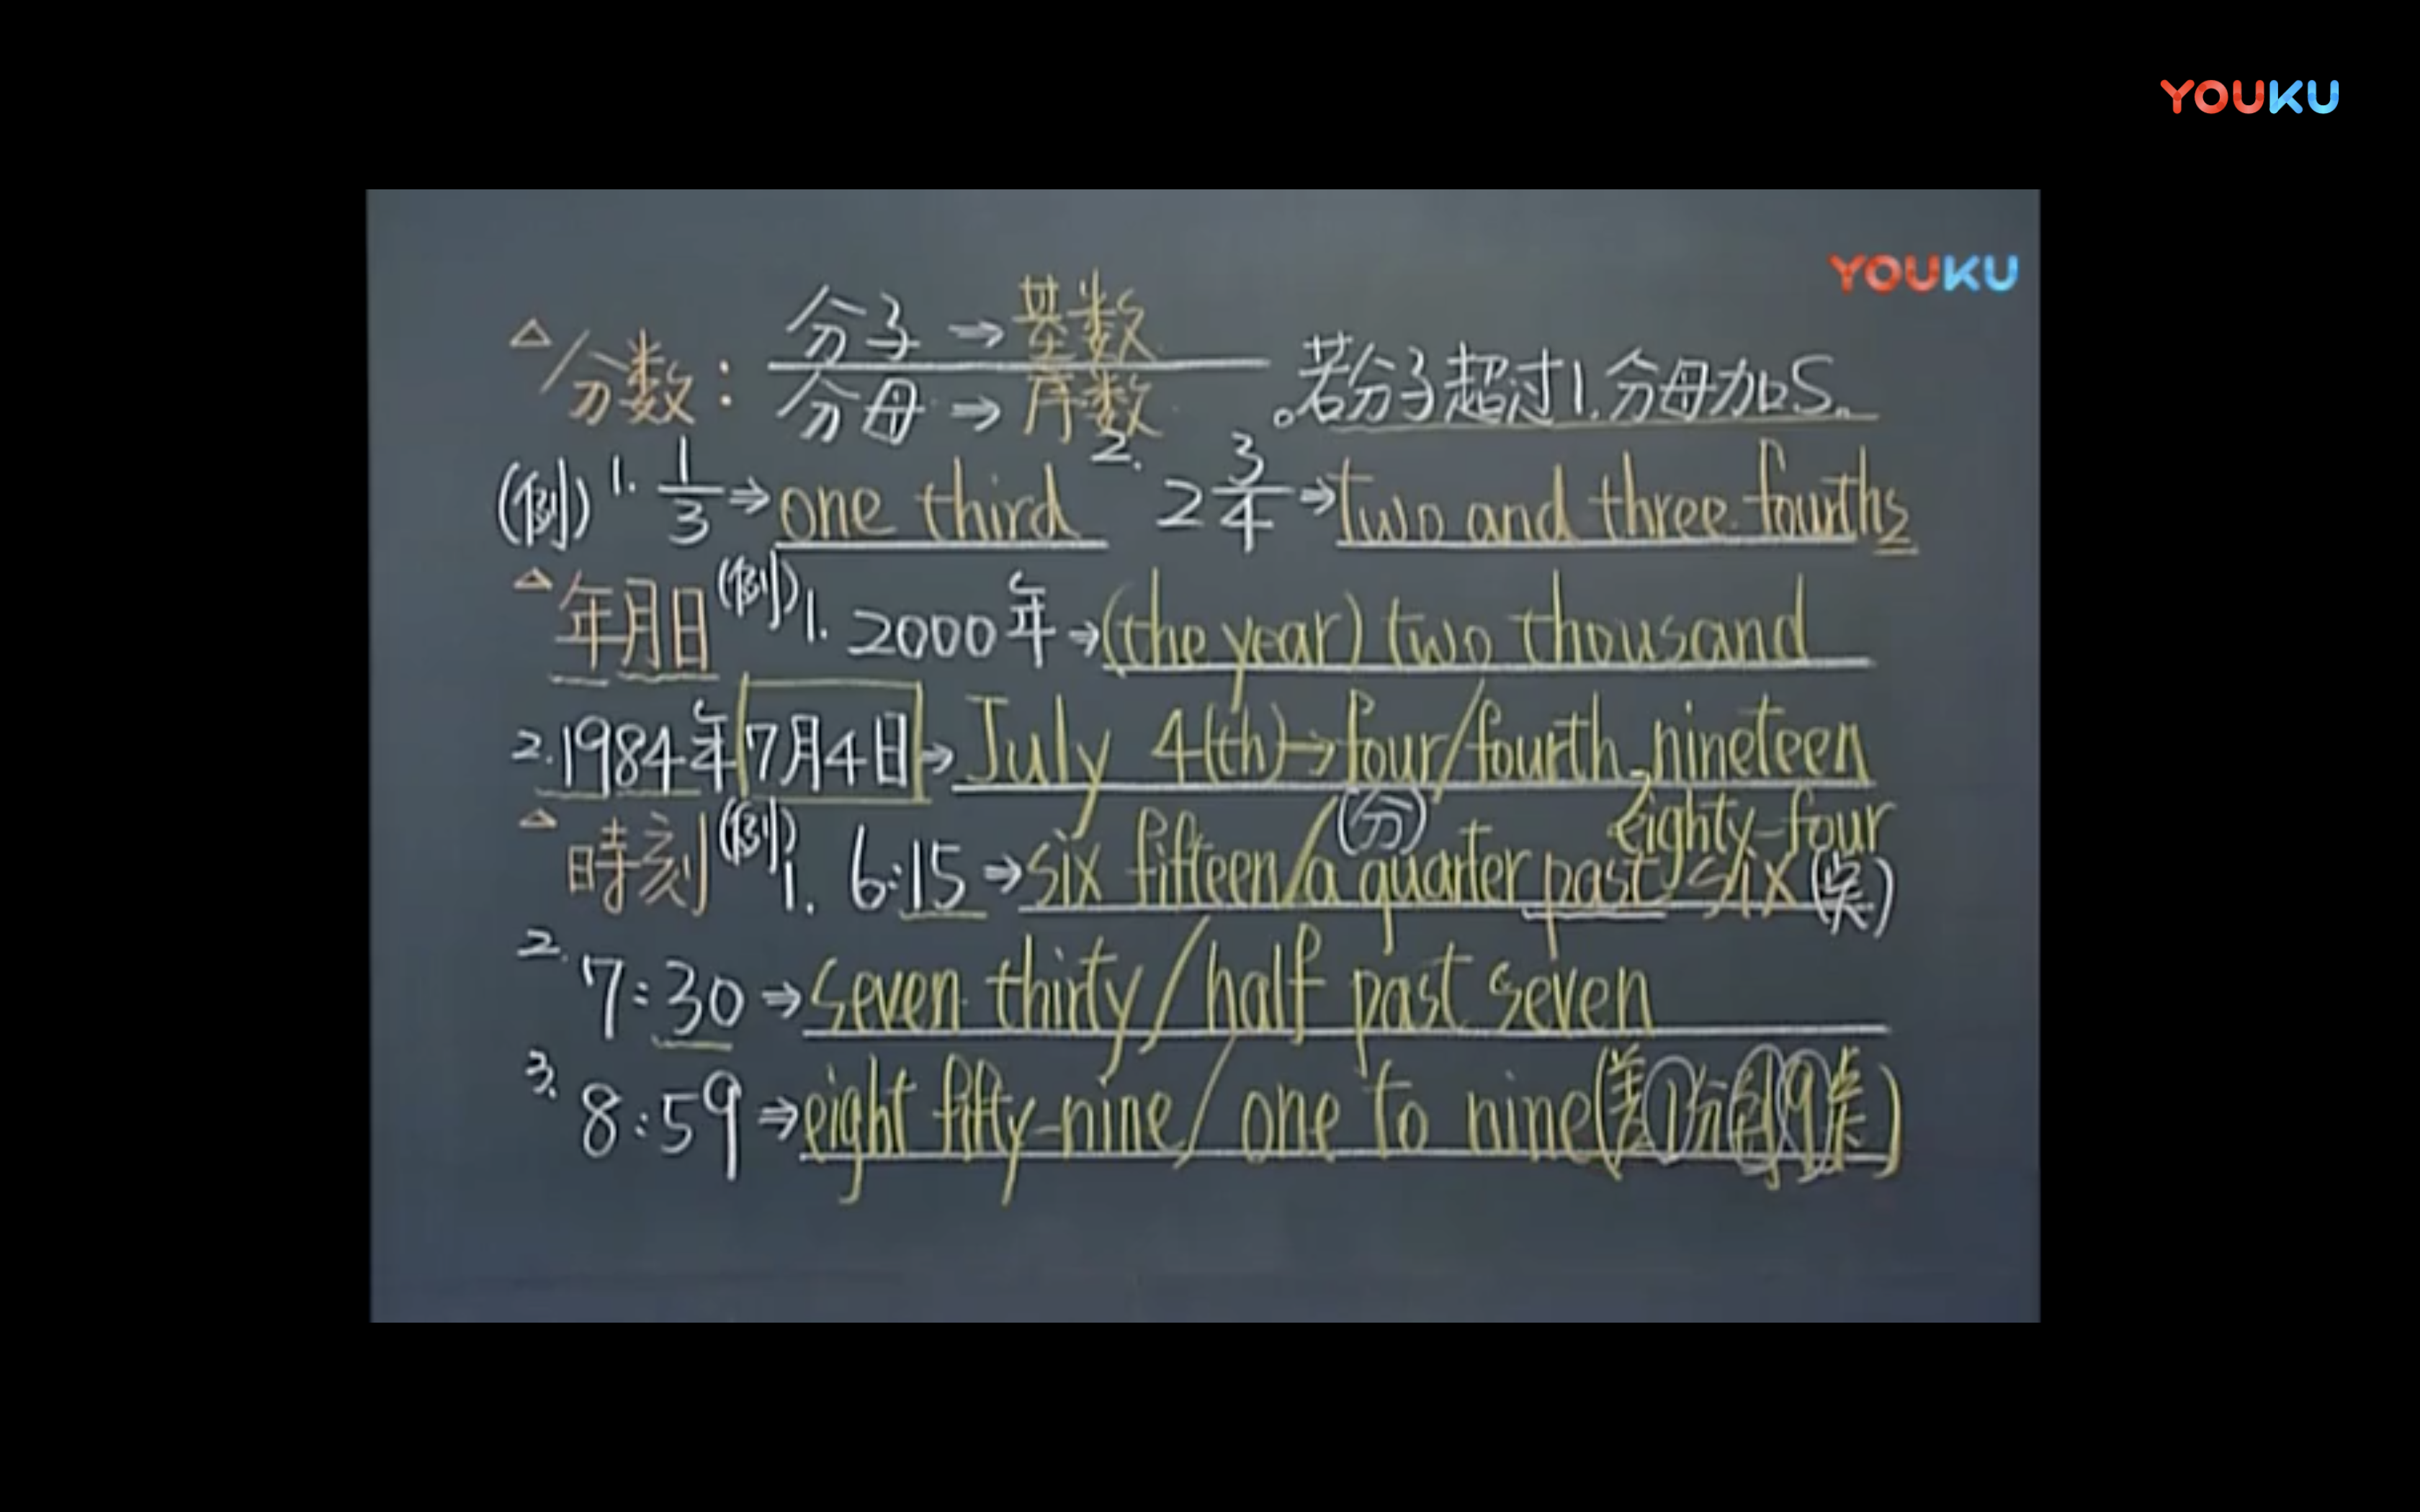 YOUKU
YOUKU
△分数: 分子→基数
分母→序数 。若分子超过1.分母加S。
(例) 1. 1/3 ⇒ one third 2. 2 3/4 ⇒ two and three fourths
△年月日 (例) 1. 2000年→(the year) two thousand
2. 1984年7月4日→July 4(th)→four/fourth, nineteen
eighty-four
△時刻 (例) 1. 6:15 ⇒ six fifteen/a quarter (分) past six (点)
2. 7:30 ⇒ seven thirty/half past seven
3. 8:59 ⇒ eight fifty-nine/one to nine(差1分到9点)